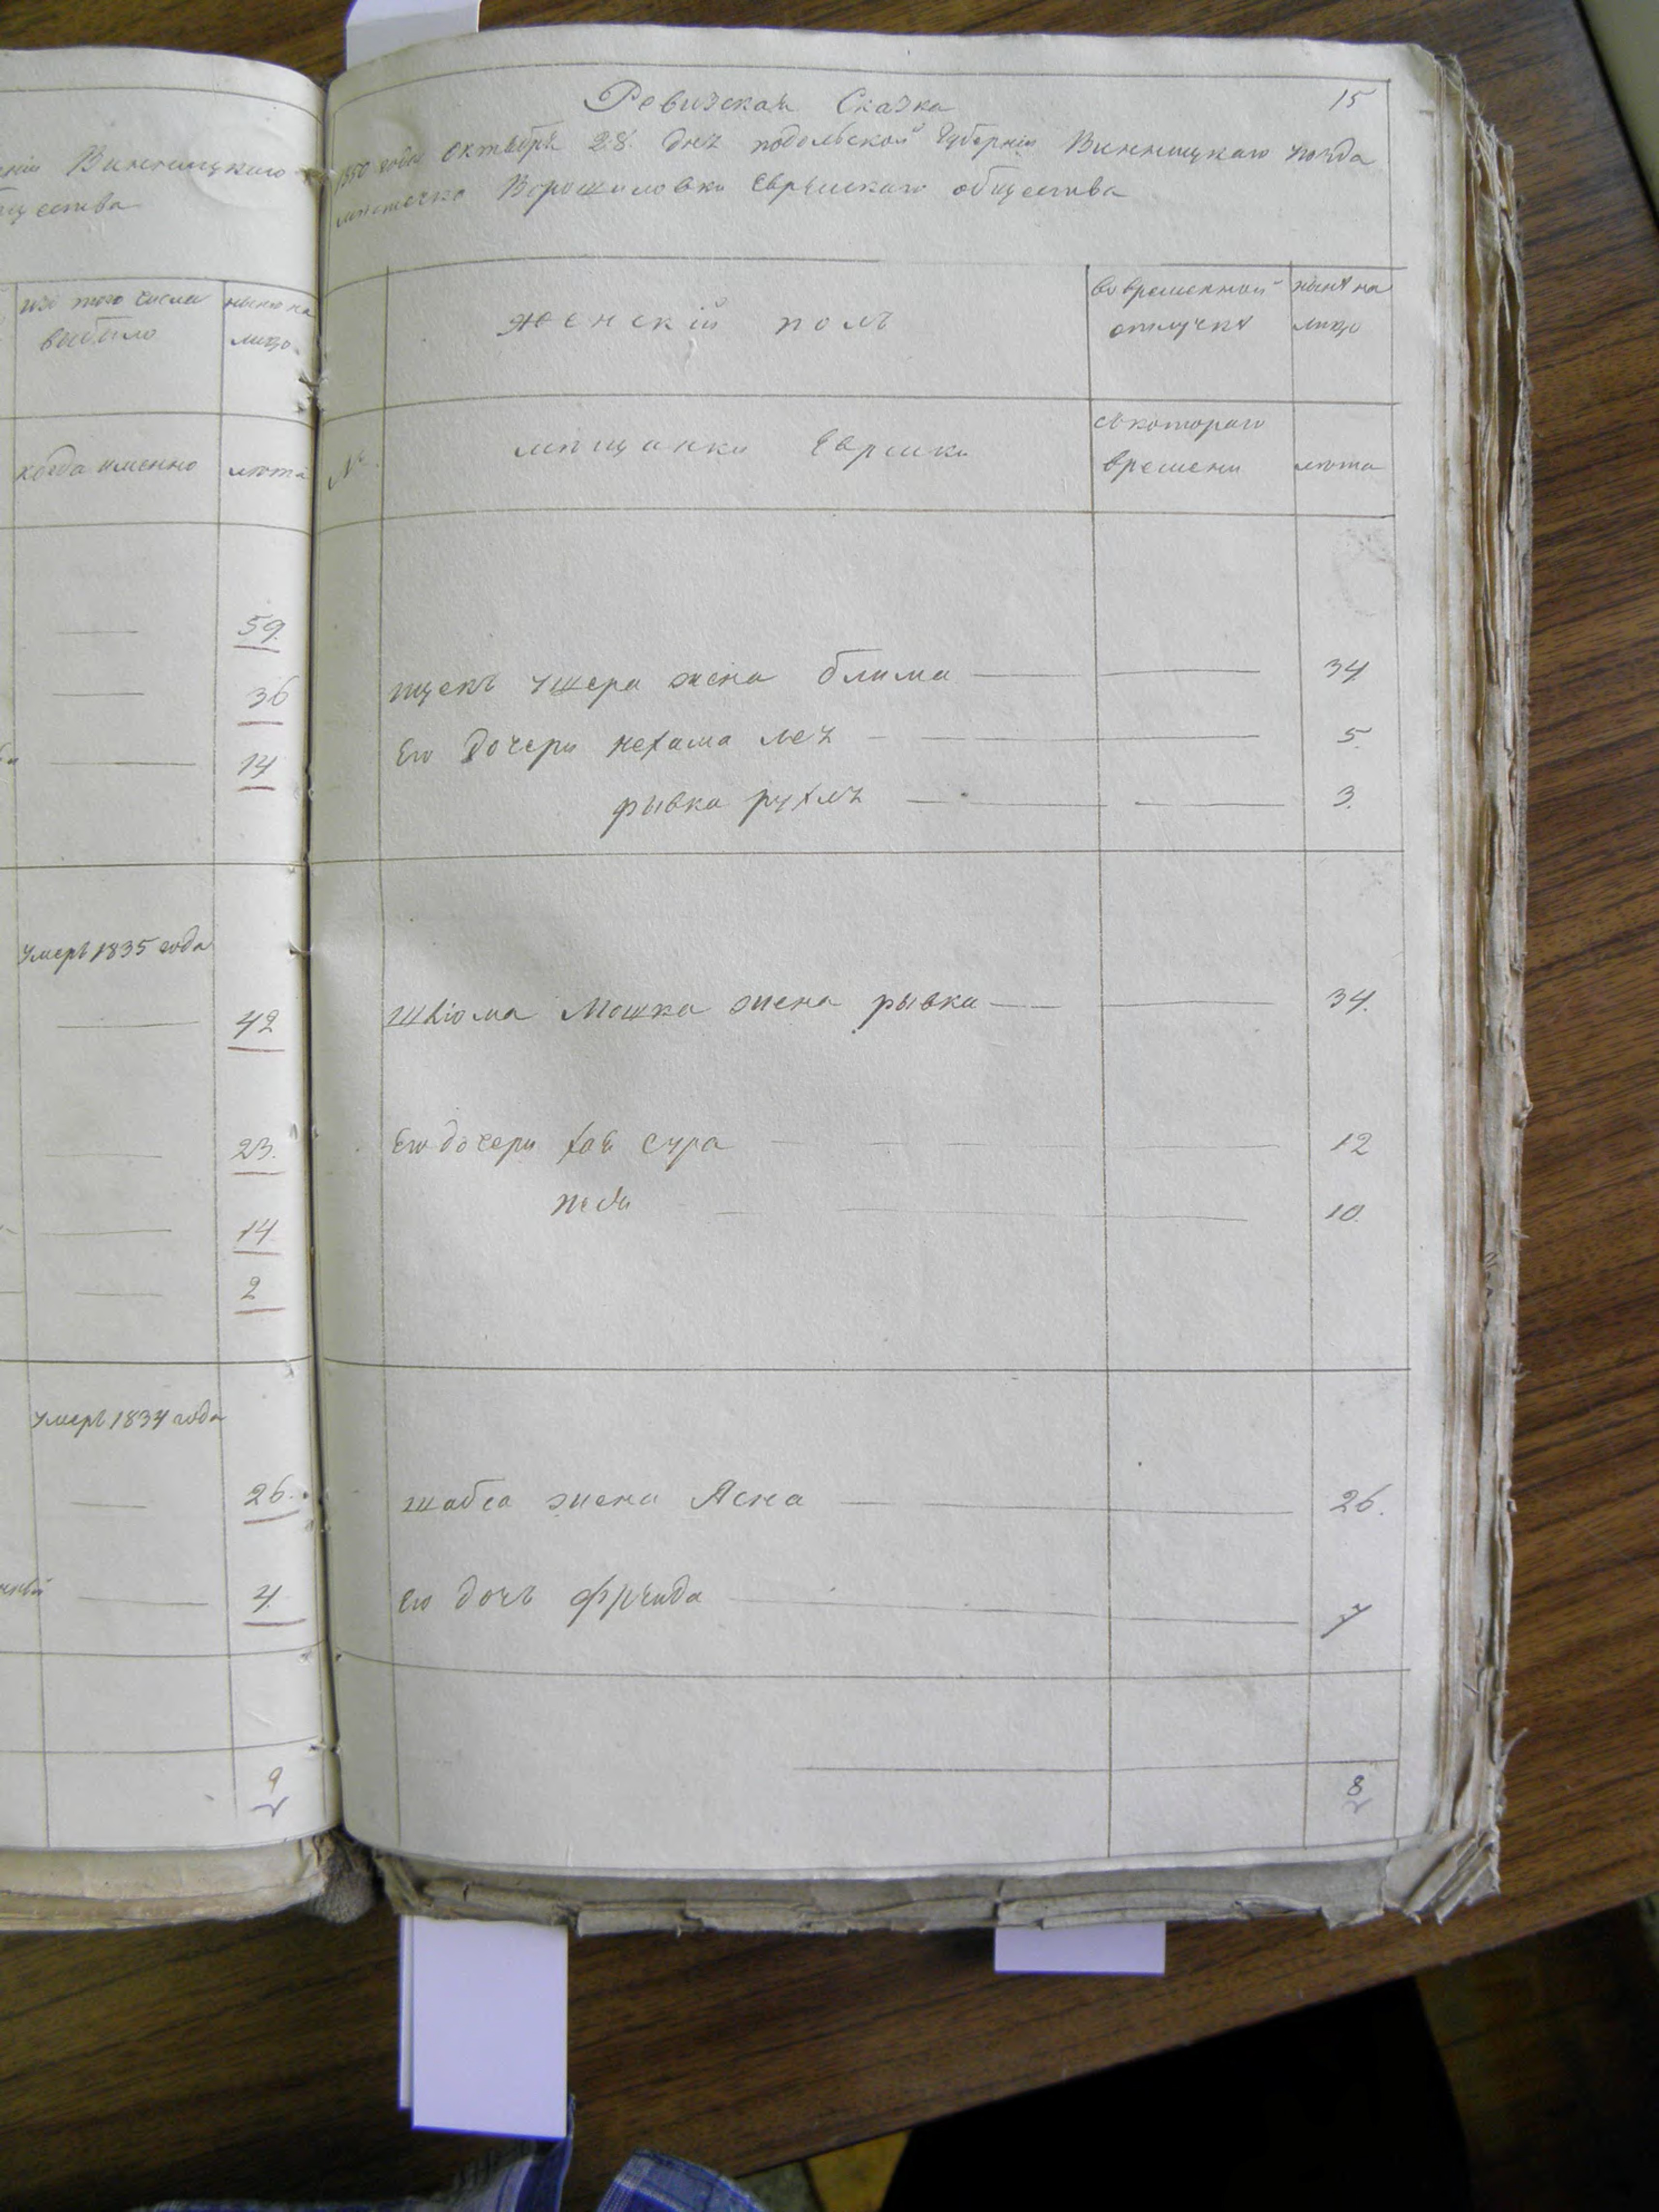 Винницкаго
щества
изъ того числа
выбыло
нынѣ на
лицо
когда именно
лѣта
59.
36
14
умеръ 1835 года
42
23.
14
2
умеръ 1834 года
26.
4.
9
Ревизская Сказка
15
1850 года октября 28. дня подольской Губерніи Винницкаго уѣзда
мѣстечка Ворошиловки Еврейскаго общества
женскій полъ
во временной
отлучкѣ
нынѣ на
лицо
№
мѣщанки Еврейки
съ котораго
времени
лѣта
ицекъ ушера жена блима 34
Его дочери нехама лея 5.
рывка рухля 3.
шліома Мошка жена рывка 34.
Его дочери хая сура 12
песя 10.
шабса жена Асна 26.
Его дочь фрейда
8